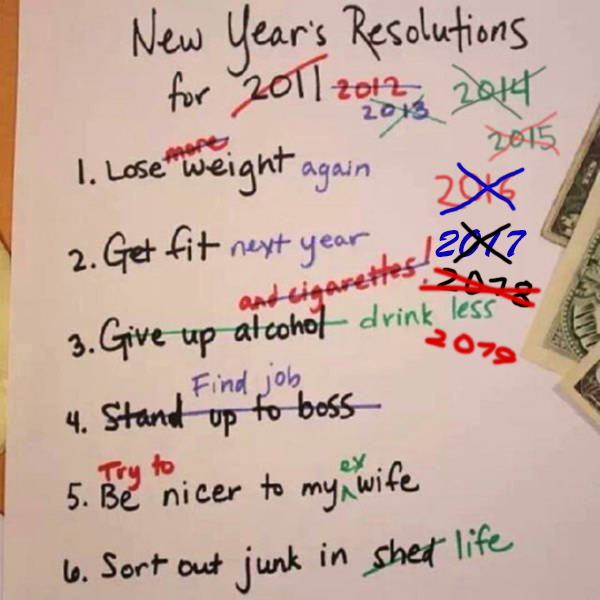 New Year's Resolutions
for 2011 2012 2014
2013
2015
more
1. Lose weight again
2016
2. Get fit next year 2017
and cigarettes! 2018
3. Give up alcohol drink less
2019
Find job
4. Stand up to boss
Try to ex
5. Be nicer to my wife
6. Sort out junk in shed life